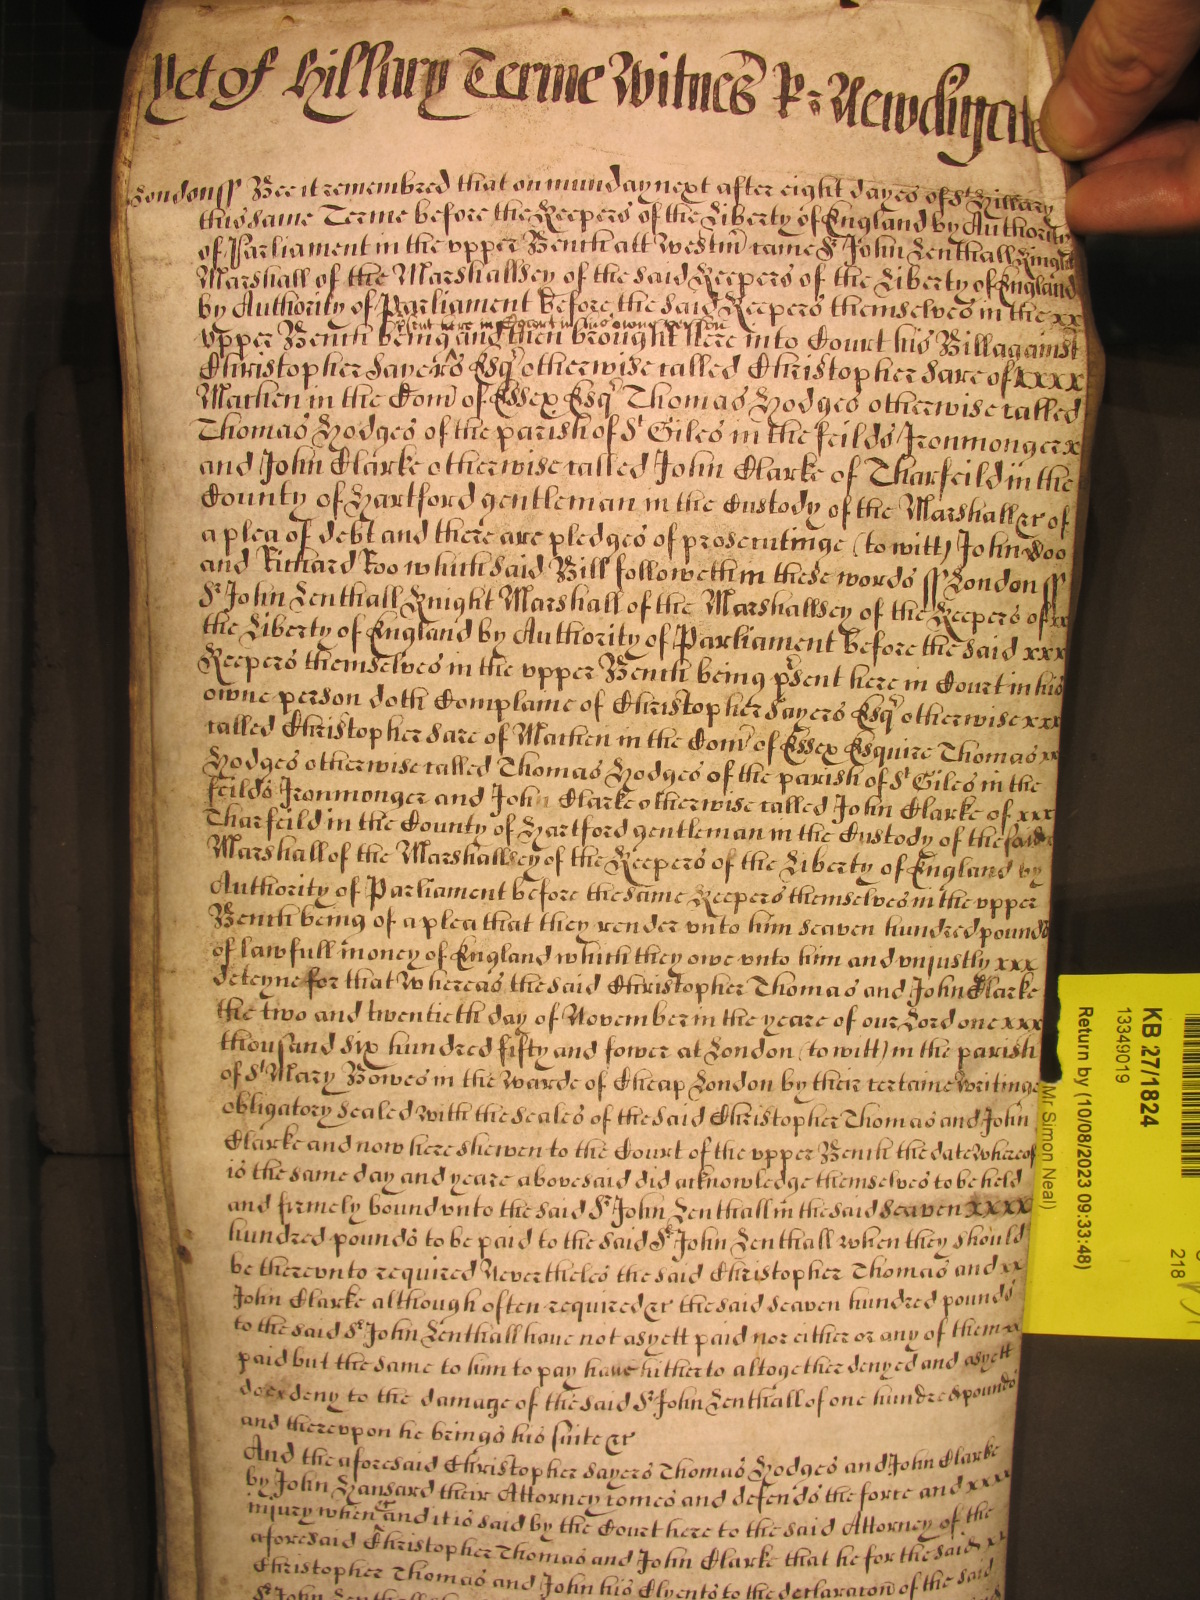 Yet of Hillary Terme Witnes R: Newdigate
London ss Bee it remembred that on munday next after eight dayes of St Hillary
this same Terme before the Keepers of the Liberty of England by Authority
of Parliament in the upper Bench att Westmr came Sr John Lenthall Knight
Marshall of the Marshallsey of the said Keepers of the Liberty of England
by Authority of Parliament before the said Keepers themselves in the xx
psent here in Court in his owne person
upper Bench being and then brought here into Court his Bill against
Christopher Sayers Esqr otherwise called Christopher Sare of xxxx
Mathen in the Com of Essex Esqr Thomas Hodges otherwise called
Thomas Hodges of the parish of St Giles in the feilds Ironmonger x
and John Clarke otherwise called John Clarke of Tharfeild in the
County of Hartford gentleman in the Custody of the Marshall &c of
a plea of debt and there are pledges of prosecutinge (to witt) John Doo
and Richard Roo which said Bill followeth in these words ss London ss
Sr John Lenthall Knight Marshall of the Marshallsey of the Keepers of xx
the Liberty of England by Authority of Parliament before the said xxx
Keepers themselves in the upper Bench being psent here in Court in his
owne person doth Complaine of Christopher Sayers Esqr otherwise xxx
called Christopher Sare of Mathen in the Com of Essex Esquire Thomas xx
Hodges otherwise called Thomas Hodges of the parish of St Giles in the
feilds Ironmonger and John Clarke otherwise called John Clarke of xxx
Tharfeild in the County of Hartford gentleman in the Custody of the said
Marshall of the Marshallsey of the Keepers of the Liberty of England by
Authority of Parliament before the same Keepers themselves in the upper
Bench being of a plea that they render unto him seaven hundred pounds
of lawfull money of England which they owe unto him and unjustly xxx
deteyne for that Whereas the said Christopher Thomas and John Clarke
the two and twentieth day of November in the yeare of our Lord one xxx
thousand six hundred fifty and fower at London (to witt) in the parish
of St Mary Bowes in the Warde of Cheap London by their certaine Writinge
obligatory sealed with the seales of the said Christopher Thomas and John
Clarke and now here shewen to the Court of the upper Bench the date Whereof
is the same day and yeare abovesaid did acknowledge themselves to be held
and firmely bound unto the said Sr John Lenthall in the said seaven xxxx
hundred pounds to be paid to the said Sr John Lenthall when they should
be thereunto required Nevertheles the said Christopher Thomas and xx
John Clarke although often required &c the said seaven hundred pounds
to the said Sr John Lenthall have not as yett paid nor either or any of them x
paid but the same to him to pay have hitherto altogether denyed and as yett
doe deny to the damage of the said Sr John Lenthall of one hundred pounds
and thereupon he brings his suite &c
And the aforesaid Christopher Sayers Thomas Hodges and John Clarke
by John Hansard their Attorney comes and defends the force and xxxx
injury when &c and it is said by the Court here to the said Attorney of the
aforesaid Christopher Thomas and John Clarke that he for the said xx
Christopher Thomas and John his Clyents to the declaracon of the said
Sr John Lenthall
KB 27/1824
13349019
Return by (10/08/2023 09:33:48)
Mr Simon Neal)
218